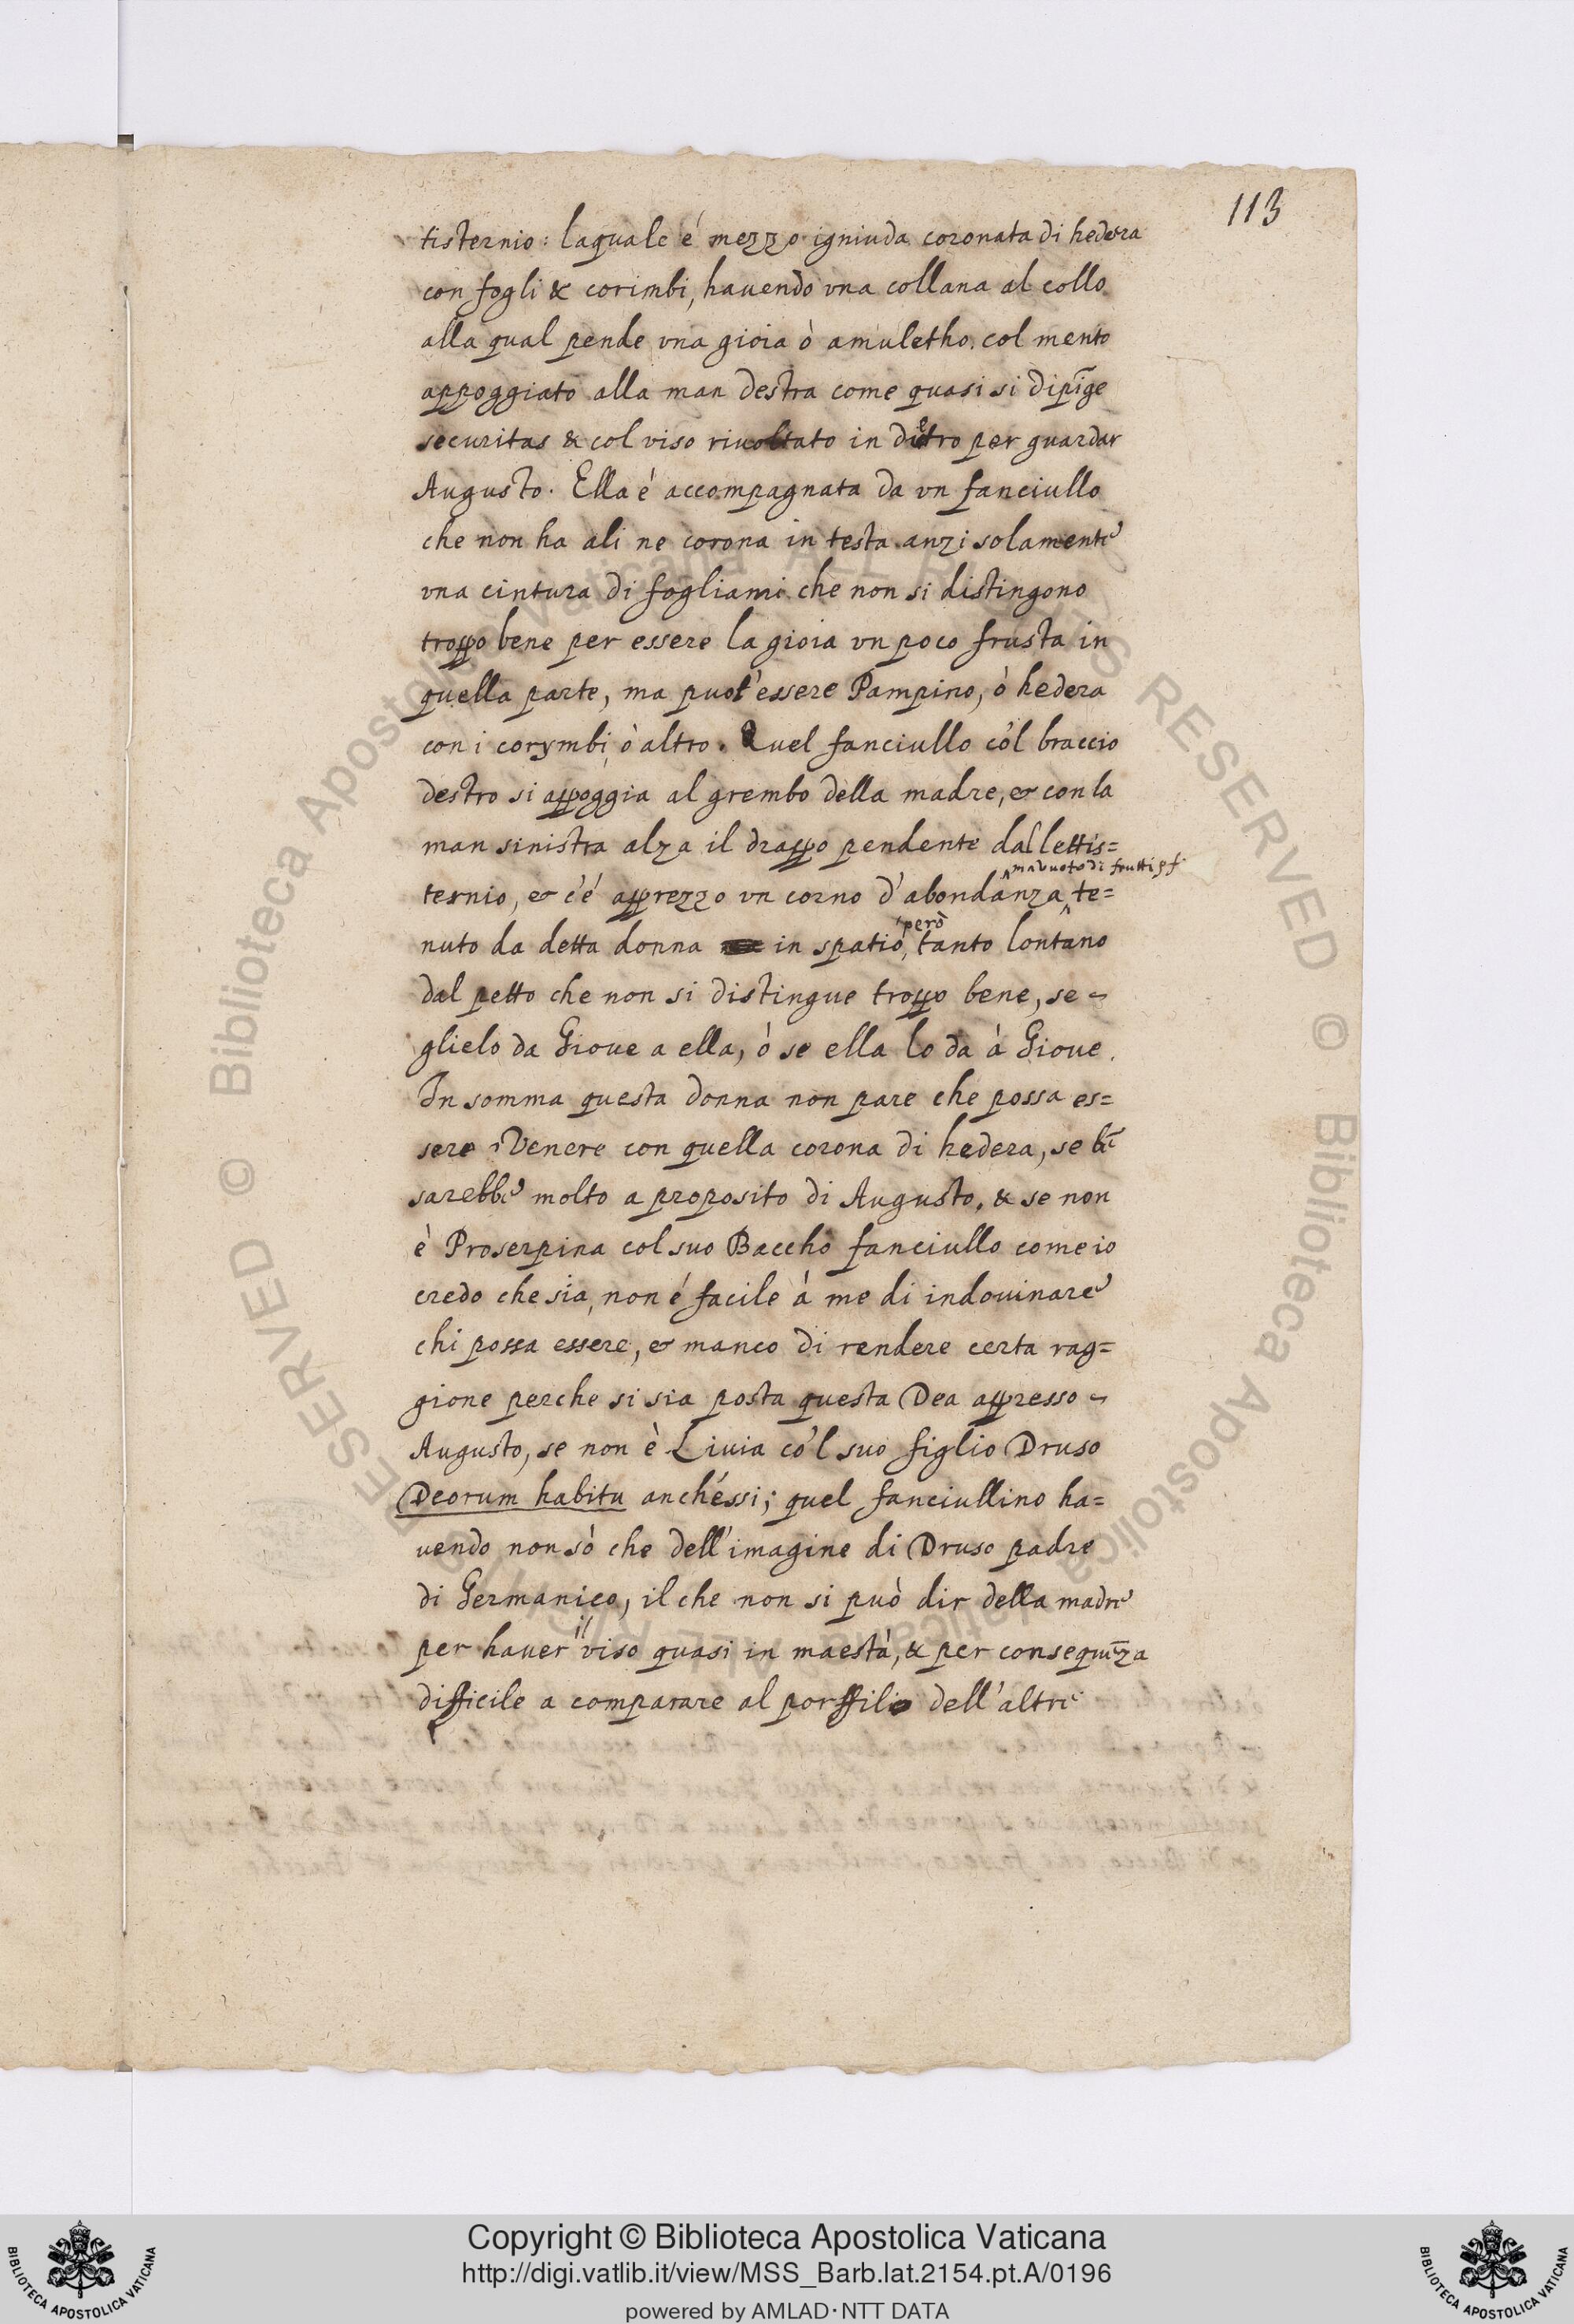 113
tisternio: laquale é mezzo igniuda coronata di hedera
con fogli & corimbi, hauendo vna collana al collo
alla qual pende vna gioia ò amuletho. col mento
appoggiato alla man destra come quasi si dipīge
securitas & col viso riuoltato in dietro per guardar
Augusto. Ella è accompagnata da vn fanciullo
che non ha ali ne corona in testa anzi solamente
vna cintura di fogliami che non si distingono
troppo bene per essere la gioia vn poco frusta in
quella parte, ma puot'essere Pampino, ò hedera
con i corymbi, ò altro. Quel fanciullo co'l braccio
destro si appoggia al grembo della madre, & con la
man sinistra alza il drappo pendente dal lettis=
ma vuoto di frutti
ternio, & c'é apprezzo vn corno d'abondanza te=
però
nuto da detta donna in spatio, tanto lontano
dal petto che non si distingue troppo bene, se
glielo da Gioue a ella, ò se ella lo da à Gioue.
In somma questa donna non pare che possa es=
sere Venere con quella corona di hedera, se bē
sarebbe molto a proposito di Augusto. & se non
è Proserpina col suo Baccho fanciullo come io
credo che sia, non é facile à me di indouinare
chi possa essere, & manco di rendere certa rag=
gione perche si sia posta questa Dea appresso
Augusto, se non è Liuia co'l suo figlio Druso
Deorum habitu anch'essi; quel fanciullino ha=
uendo non sò che dell'imagine di Druso padre
di Germanico, il che non si può dir della madre
per hauer il viso quasi in maestà, & per consequēza
difficile a comparare al porffilio dell'altre
Copyright © Biblioteca Apostolica Vaticana
http://digi.vatlib.it/view/MSS_Barb.lat.2154.pt.A/0196
powered by AMLAD·NTT DATA
BIBLIOTECA APOSTOLICA VATICANA
BIBLIOTECA APOSTOLICA VATICANA